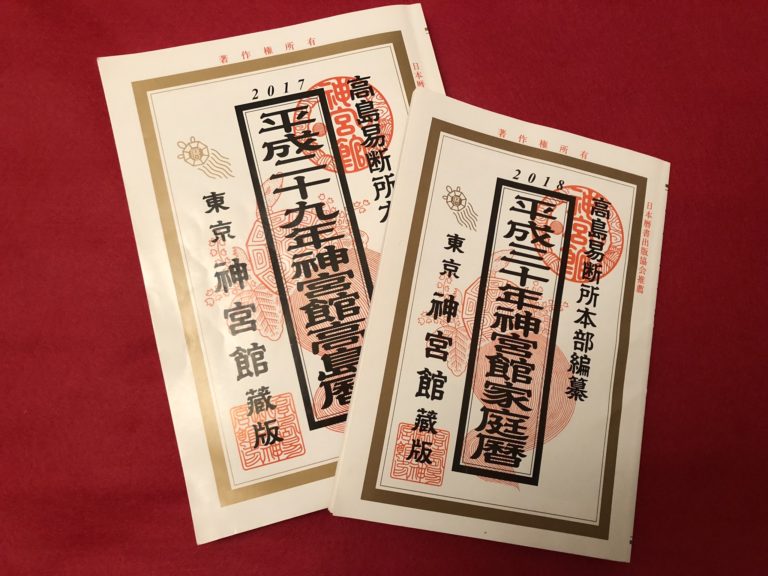 著作権所有
日本暦
2017
神宮館
高島易断所
平成二十九年神宮館高島暦
東京 神宮館藏版
著作権所有
日本暦書出版協会推薦
2018
神宮館
高島易断所本部編纂
平成三十年神宮館家庭暦
東京 神宮館藏版